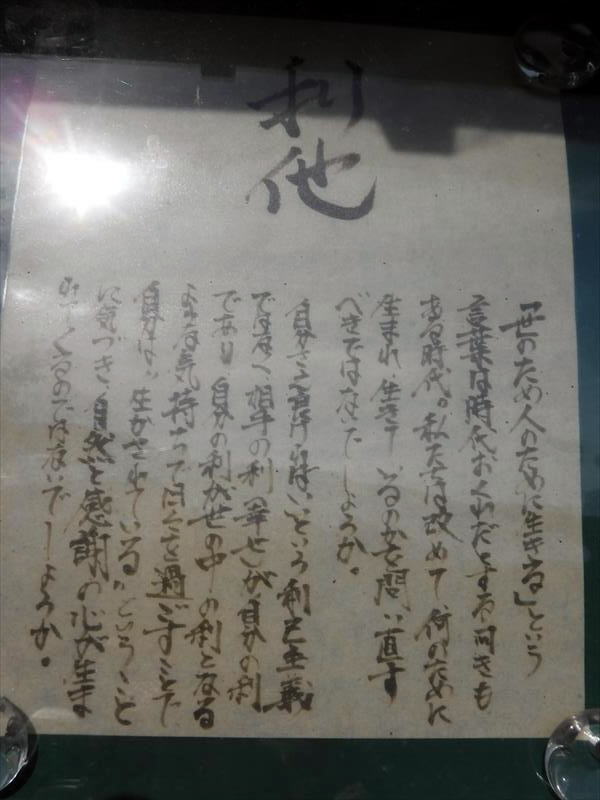 利他
「世のため人のために生きる」という
言葉は時代おくれだとする向きも
ある時代。私たちは改めて何のために
生まれ、生きているのかを問い直す
べきではないでしょうか。
自分さえ良ければいいという利己主義
ではなく、相手の利(幸せ)が自分の利
であり、自分の利が世の中の利となる
ような気持ちで日々を過ごすことで
自分は"生かされている"ということ
に気づき、自然と感謝の心が生ま
れてくるのではないでしょうか。